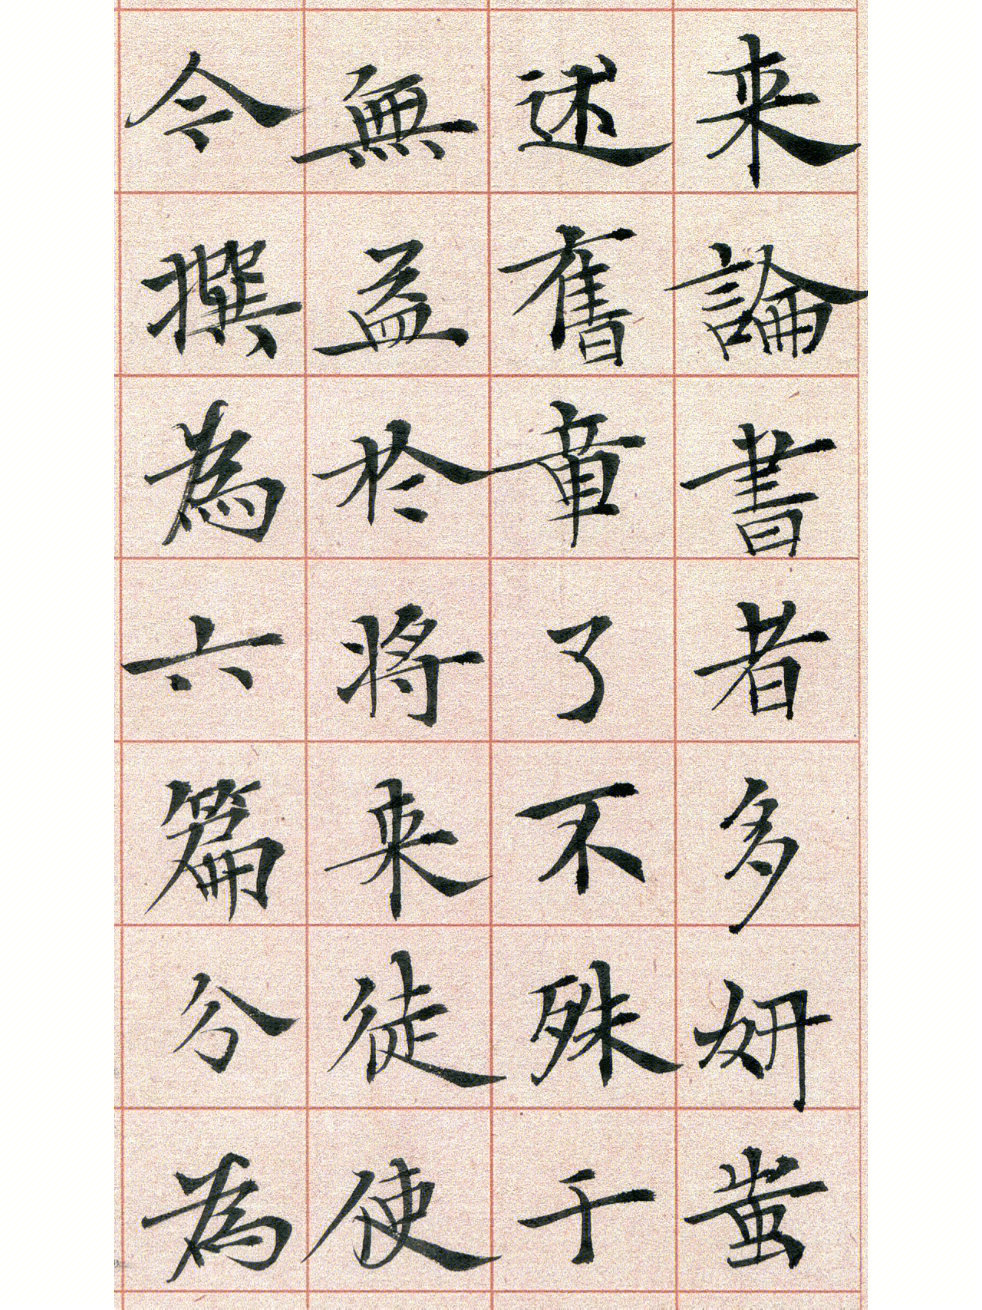 来論書者多妍蚩
述舊章了不殊于
無益於将来徒使
今撰為六篇分為